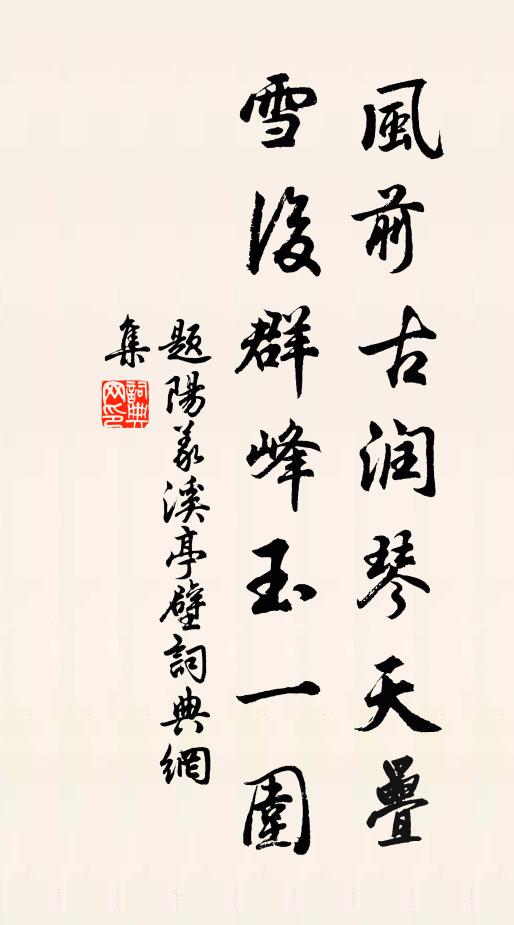 風前古澗琴天疊
雪後群峰玉一圍
題陽羨溪亭壁詞典網
集
詞典網印